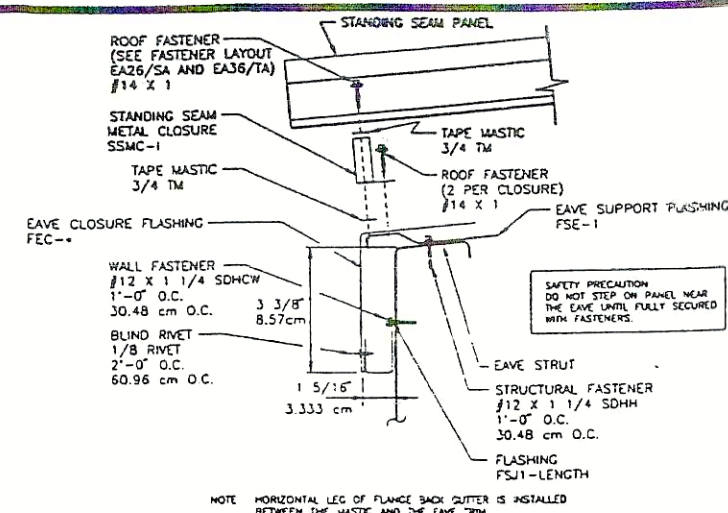 STANDING SEAM PANEL
ROOF FASTENER
(SEE FASTENER LAYOUT
EA26/SA AND EA36/TA)
#14 X 1
STANDING SEAM
METAL CLOSURE
SSMC-1
TAPE MASTIC
3/4 TM
TAPE MASTIC
3/4 TM
ROOF FASTENER
(2 PER CLOSURE)
#14 X 1
EAVE CLOSURE FLASHING
FEC-
EAVE SUPPORT FLASHING
FSE-1
WALL FASTENER
#12 X 1 1/4 SDHCW
1'-0" O.C.
30.48 cm O.C.
3 3/8"
8.57cm
SAFETY PRECAUTION
DO NOT STEP ON PANEL NEAR
THE EAVE UNTIL FULLY SECURED
WITH FASTENERS.
BLIND RIVET
1/8 RIVET
2'-0" O.C.
60.96 cm O.C.
1 5/16"
3.333 cm
EAVE STRUT
STRUCTURAL FASTENER
#12 X 1 1/4 SDHH
1'-0" O.C.
30.48 cm O.C.
FLASHING
FSJ1-LENGTH
NOTE HORIZONTAL LEG OF FLANGE BACK GUTTER IS INSTALLED
BETWEEN THE MASTIC AND THE EAVE TRIM